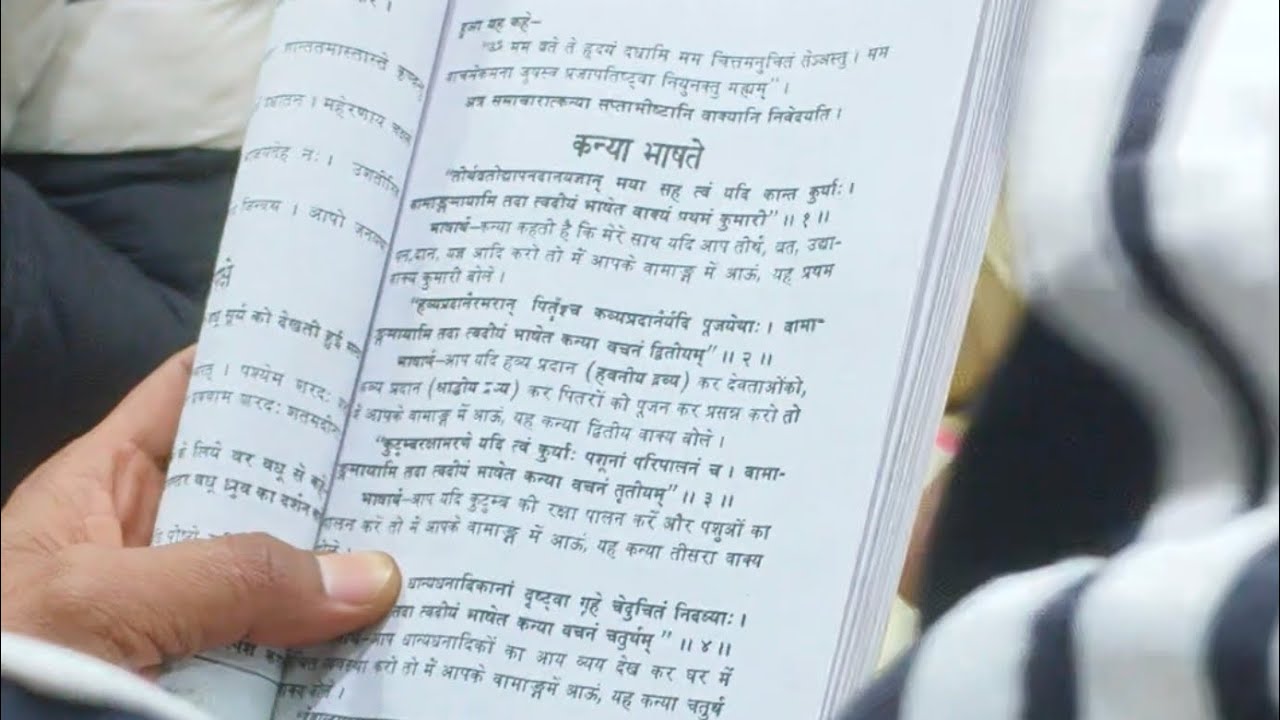 न्ततमास्तास्ते
। महेरणाय
नः। उशतीरि
जिन्वथ । आपो
सूर्य को देखती हुई
। पश्येम शरदः
शरदः शतमदी
के लिये वर वधू से
वधू ध्रुव का दर्शन
हुआ यह कहे–
मम व्रते ते हृदयं दधामि मम चित्तमनुचितं तेऽस्तु । मम
वाचमेकमना जुषस्व प्रजापतिष्ट्वा नियुनक्तु मह्यम्" ।
अत्र समाचारात्कन्या सप्तामीष्टानि वाक्यानि निवेदयति ।
कन्या भाषते
"तीर्थव्रतोद्यापनदानयज्ञान् मया सह त्वं यदि कान्त कुर्याः ।
वामाङ्गमायामि तदा त्वदीयं भाषेत वाक्यं प्रथमं कुमारी" ॥ १ ॥
भावार्थ–कन्या कहती है कि मेरे साथ यदि आप तीर्थ, व्रत, उद्या-
पन,दान, यज्ञ आदि करो तो में आपके वामाङ्ग में आऊं, यह प्रथम
वाक्य कुमारी बोले ।
"हव्यप्रदानैरमरान् पितॄंश्च कव्यप्रदानैर्यदि पूजयेथाः । वामा-
ङ्गमायामि तदा त्वदीयं भाषेत कन्या वचनं द्वितीयम्" ॥ २ ॥
भावार्थ–आप यदि हव्य प्रदान (हवनीय द्रव्य) कर देवताओंको,
कव्य प्रदान (श्राद्धीय द्रव्य) कर पितरों को पूजन कर प्रसन्न करो तो
में आपके वामाङ्ग में आऊं, यह कन्या द्वितीय वाक्य बोले ।
"कुटुम्बरक्षामरणे यदि त्वं कुर्याः पशूनां परिपालनं च । वामा-
ङ्गमायामि तदा त्वदीयं भाषेत कन्या वचनं तृतीयम्" ॥ ३ ॥
भावार्थ–आप यदि कुटुम्ब की रक्षा पालन करें और पशुओं का
पालन करें तो में आपके वामाङ्ग में आऊं, यह कन्या तीसरा वाक्य
बोले ।
धान्यधनादिकानां दृष्ट्वा गृहे चेदुचितं निदध्याः ।
तदा त्वदीयं भाषेत कन्या वचनं चतुर्थम्" ॥ ४ ॥
आप धान्यधनादिकों का आय व्यय देख कर घर में
व्यवस्था करो तो में आपके वामाङ्गमें आऊं, यह कन्या चतुर्थ
वाक्य बोले ।